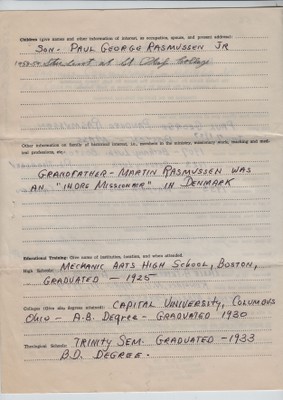 Children (give names and other information of interest, as occupation, spouse, and present address)
SON - PAUL GEORGE RASMUSSEN JR
1958-59 Student at St Olaf College
Other information on family of historical interest, i.e., members in the ministry, missionary work, teaching and medical professions, etc.:
GRANDFATHER - MARTIN RASMUSSEN WAS
AN "INDRE MISSIONAER" IN DENMARK
Educational Training: Give name of institution, location, and when attended.
High School: MECHANIC ARTS HIGH SCHOOL, BOSTON,
GRADUATED - 1925
College: (Give also degree attained) CAPITAL UNIVERSITY, COLUMBUS
OHIO - A.B. DEGREE - GRADUATED 1930
Theological School: TRINITY SEM. GRADUATED - 1933
B.D. DEGREE.